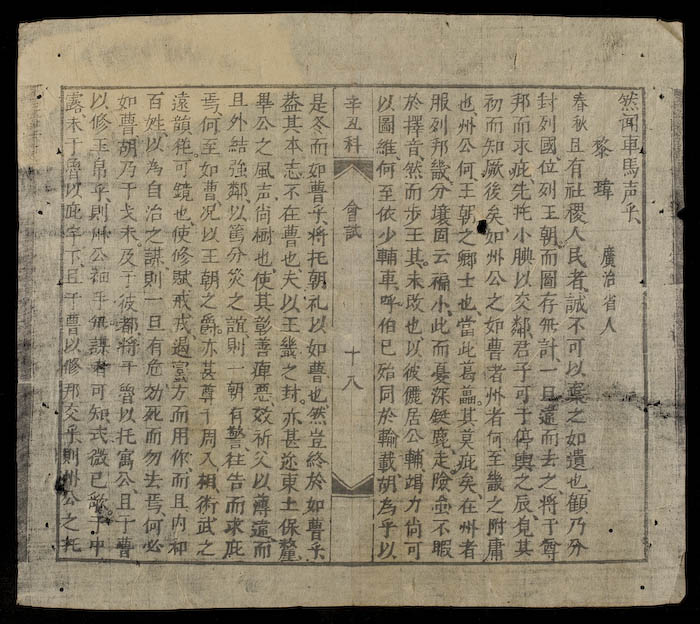 然闻車馬声乎
黎瑋 廣治省人
春秋且有社稷人民者誠不可以棄之如遺也顧乃分
封列國位列王朝而圖存無計一旦遠而去之将于尊
邦而求庇先托小腆以交鄰君子可于停輿之辰覓其
初而知厥後矣如州公之如曹者州者何至畿之附庸
也州公何王朝之卿士也當此葛藟其莫庇矣在州者
服列邦畿分壤固云褊小此而憂深鋌鹿走險不暇
於擇音然而步王其未改也以彼儷居公輔力尚可
以圖維何至依少輔車呼伯已殆同於輸載胡為乎以
辛丑科 會試 十八
是冬而如曹乎将托朝礼以如曹也然豈终於如曹乎
盖其本志不在曹也夫以王畿之封亦甚迩東土保釐
畢公之風声尚樹也使其彰善癉悪效祈父以薄違而
且外结強鄰以篤分災之誼則一朝有警往告而求庇
焉何至如曹况以王朝之爵亦甚尊于周入相術武之
遠韻徃可鏡也使修賦戒戎遏蛮方而用作而且内和
百姓以為自治之謀則一旦有危効死而勿去焉何必
如曹胡乃于戈未及于彼都将平以托寓公且于曹
以修玉帛乎則州公袖手無謀者可知式微已歌于中
露未于魯以庇宇下且于曹以修邦交乎則州公之托